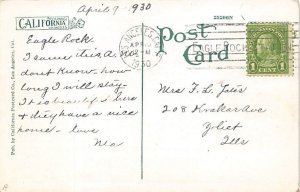 April 9 1930
CALIFORNIA
Post Card
Eagle Rock.
I came this A.M.
dont know how
long I will stay.
It is beautiful here
& they have a nice
home - love
LOS ANGELES
APR
1930
EAGLE ROCK
1 CENT 1
Mrs F. L.
208
Joliet
Ills
Pub. by California Postcard Co., Los Angeles, Cal.